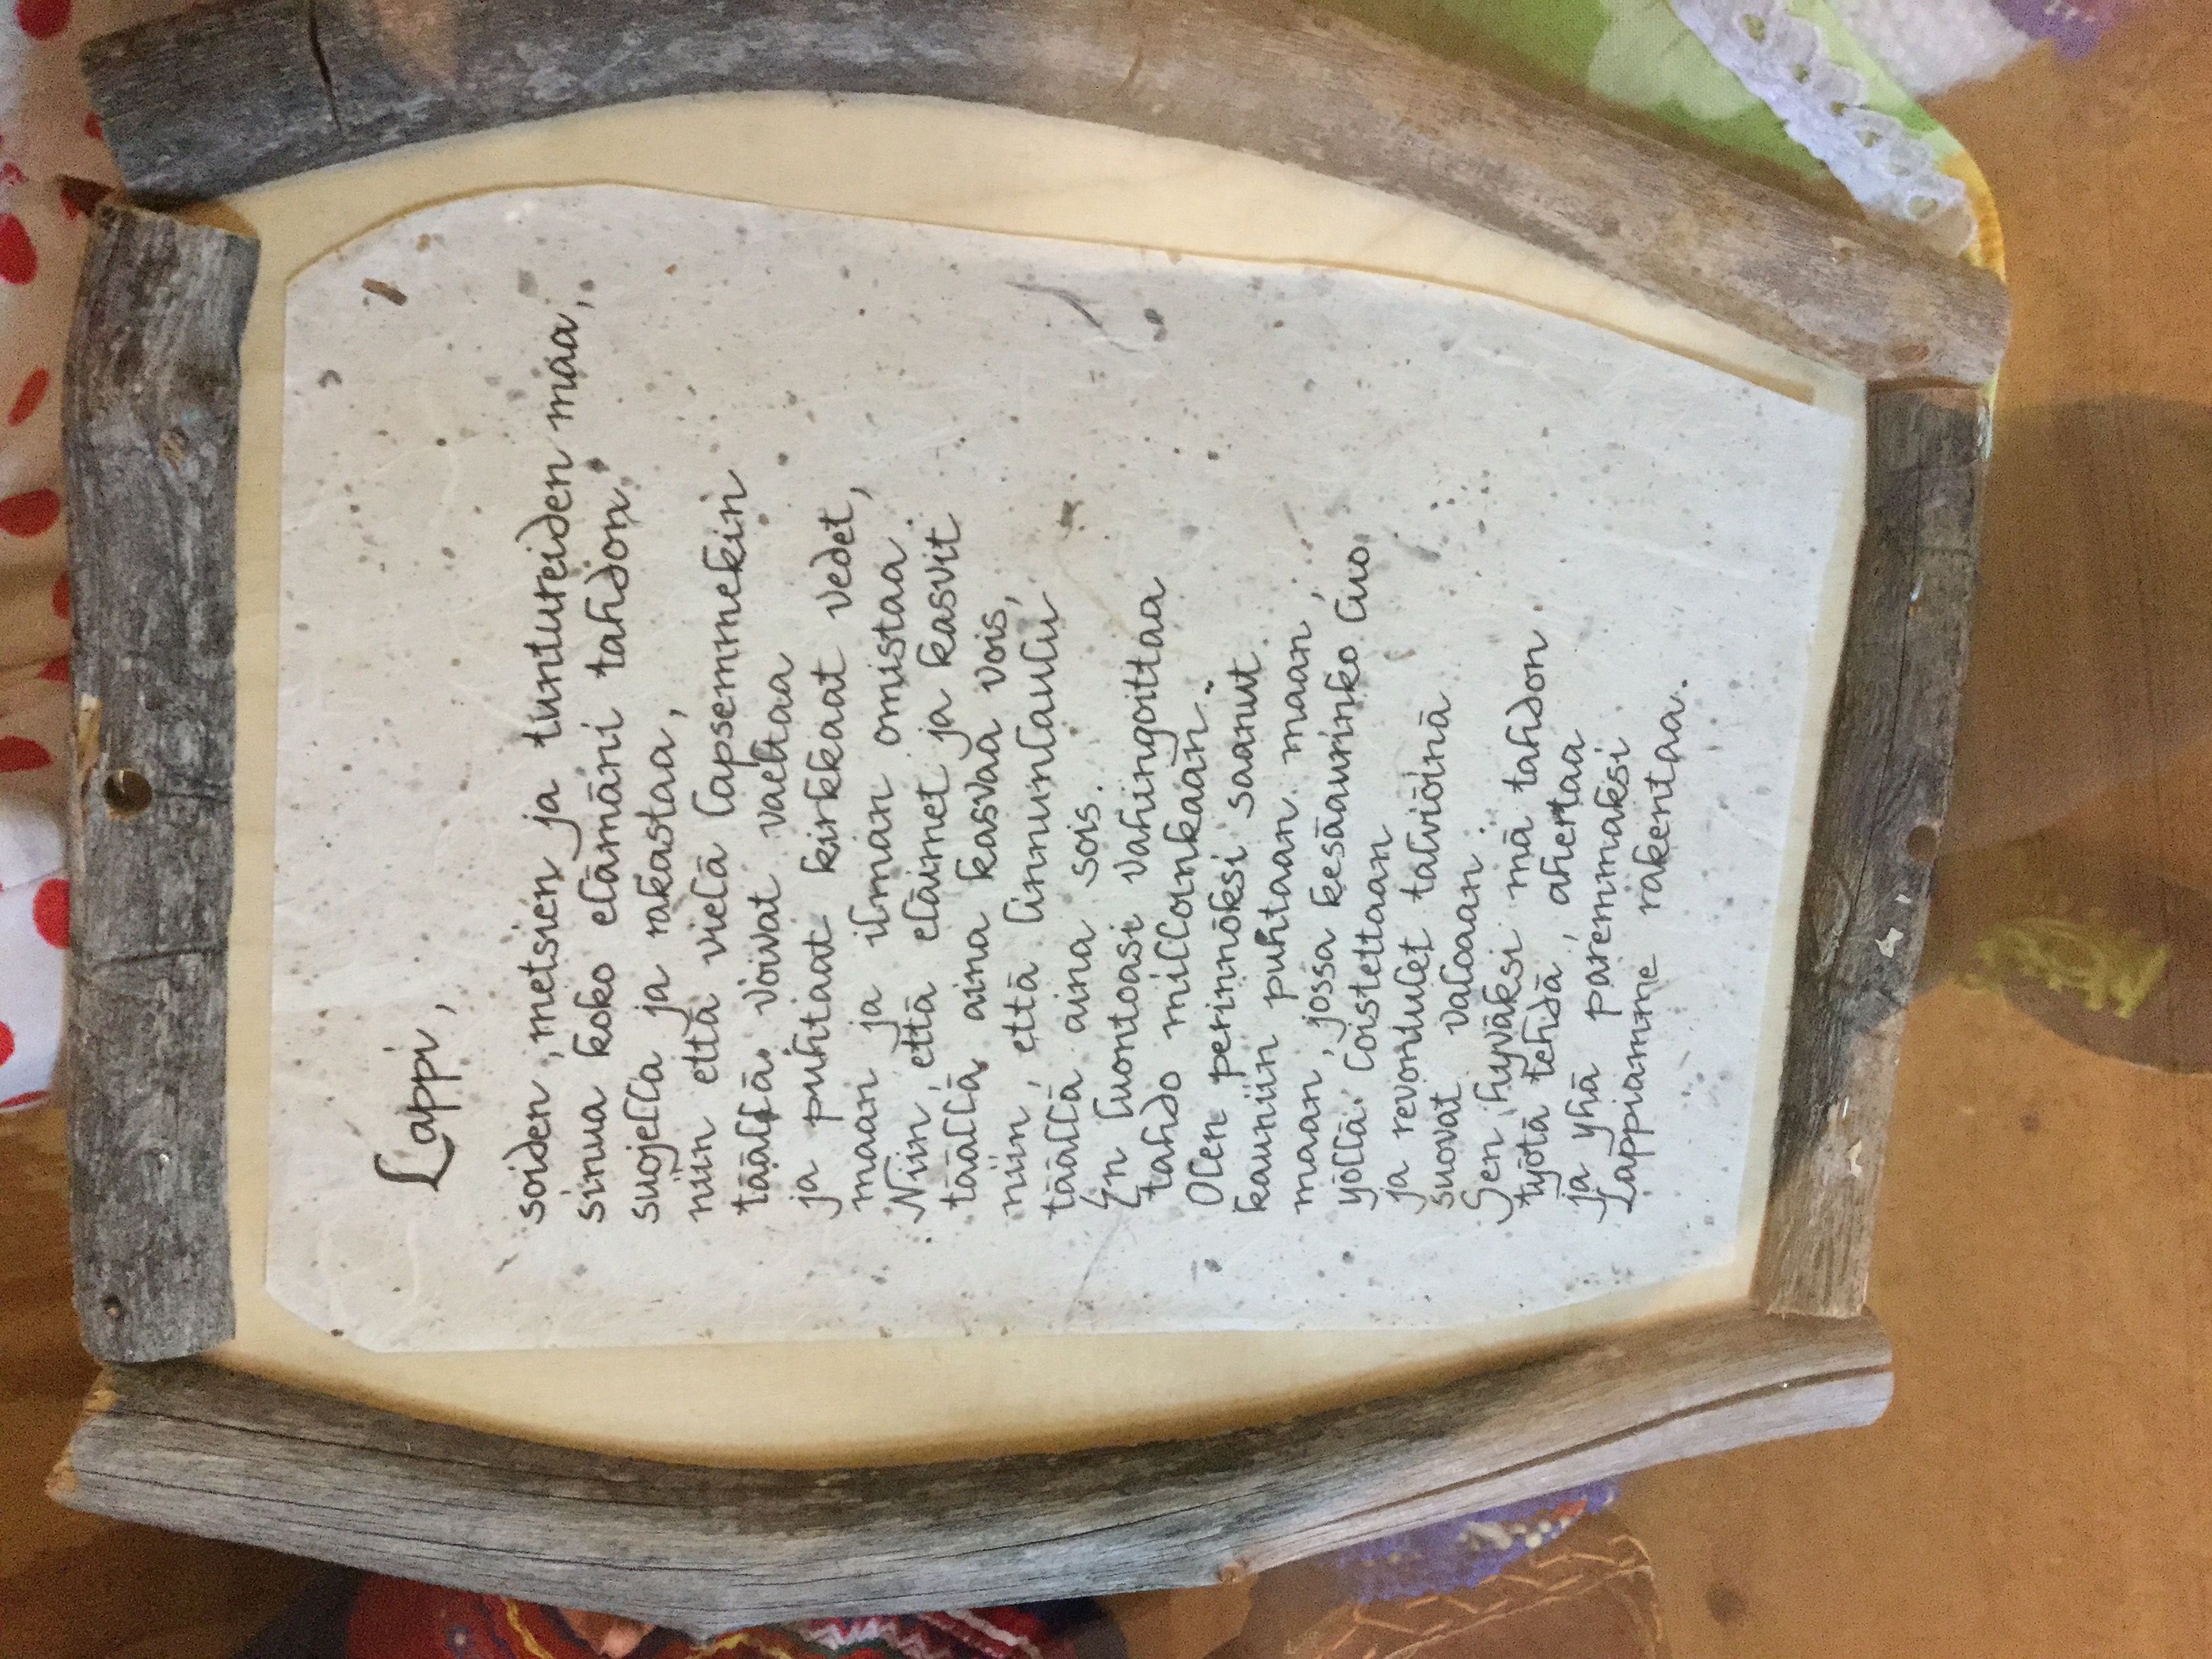 Lappi,
soiden, metsien ja tuntureiden maa,
sinua koko elämäni tahdon
suojella ja rakastaa,
niin että vielä lapsemmekin
täällä voivat vaeltaa
ja puhtaat kirkkaat vedet,
maan ja ilman omistaa.
Niin, että eläimet ja kasvit
täällä aina kasvaa vois,
niin, että linnunlaulu
täällä aina sois.
En luontoasi vahingoittaa
tahdo milloinkaan.
Olen perinnöksi saanut
kauniin puhtaan maan,
maan, jossa kesäaurinko luo
yöllä loistettaan
ja revontulet talviöinä
suovat valoaan.
Sen hyväksi mä tahdon
työtä tehdä, ahertaa
ja yhä paremmaksi
Lappiamme rakentaa.